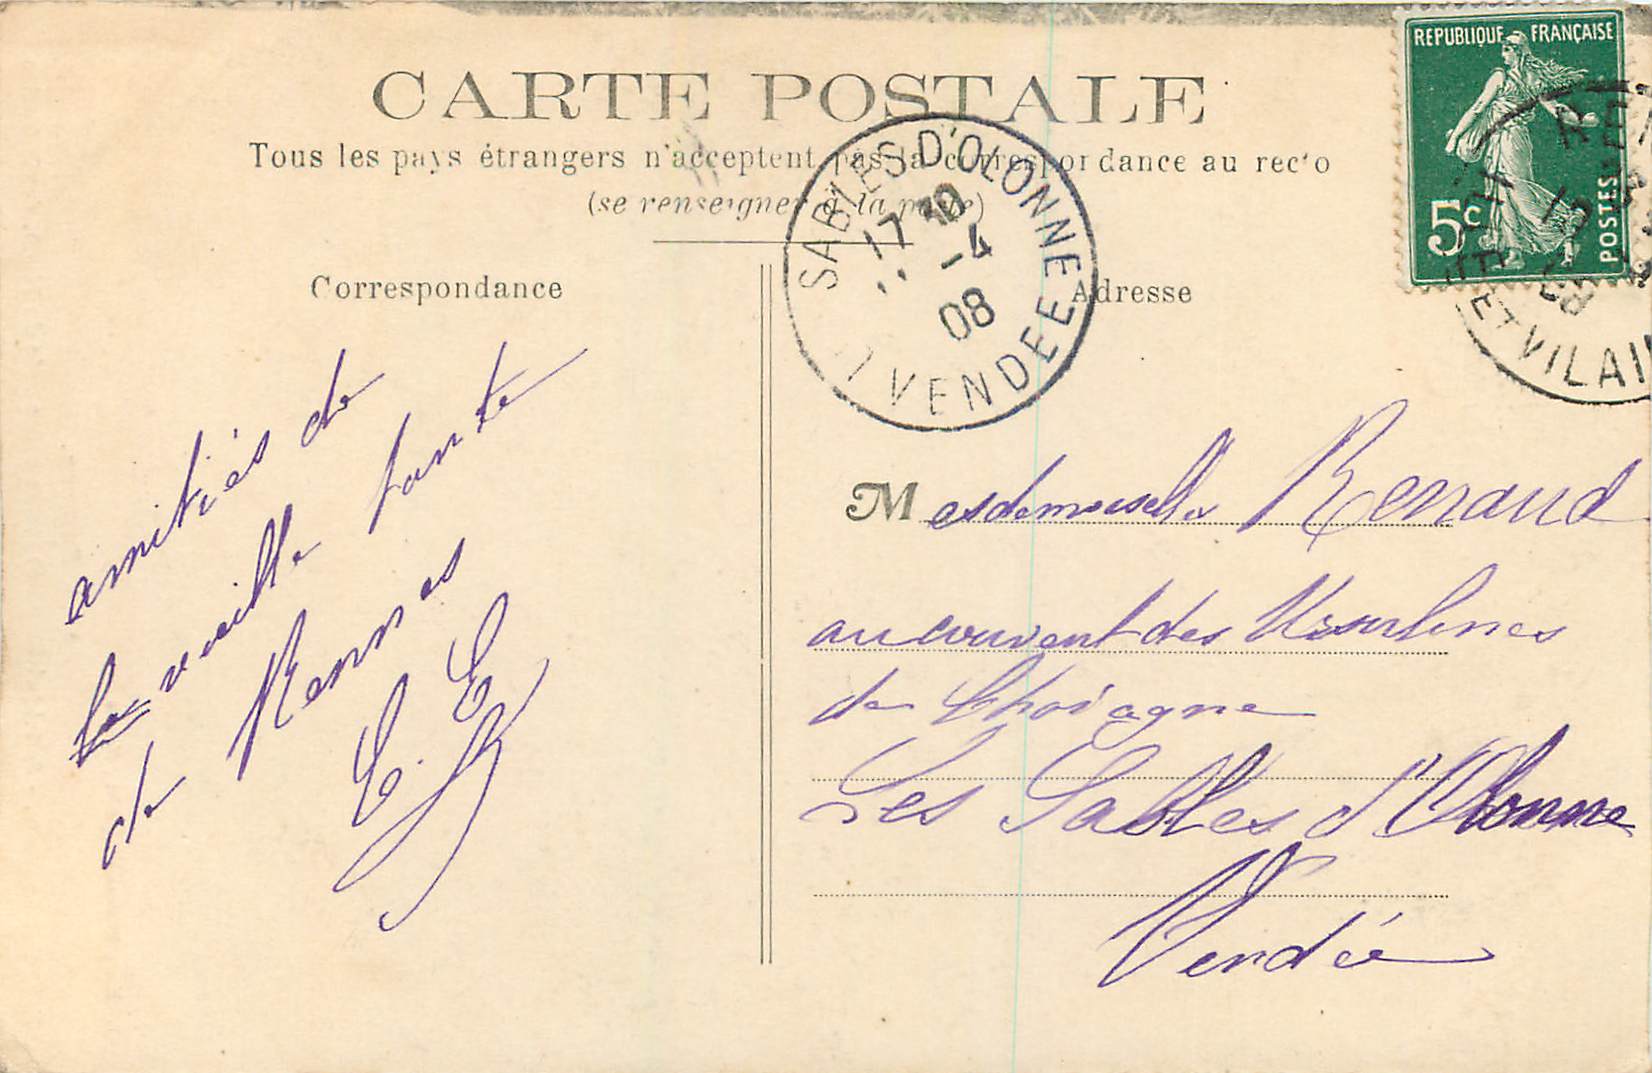 CARTE POSTALE
Tous les pays étrangers n'acceptent pas la correspondance au recto
(se renseigner à la poste)
Correspondance
Adresse
REPUBLIQUE FRANÇAISE
5c
POSTES
ET VILAI
SABLES D'OLONNE
17 30
-4
08
VENDEE
amitiés de
la vieille tante
de Rennes
Mesdemoiselles Renaud
au couvent des Ursulines
de Chavagne
Les Sables d'Olonne
Vendée